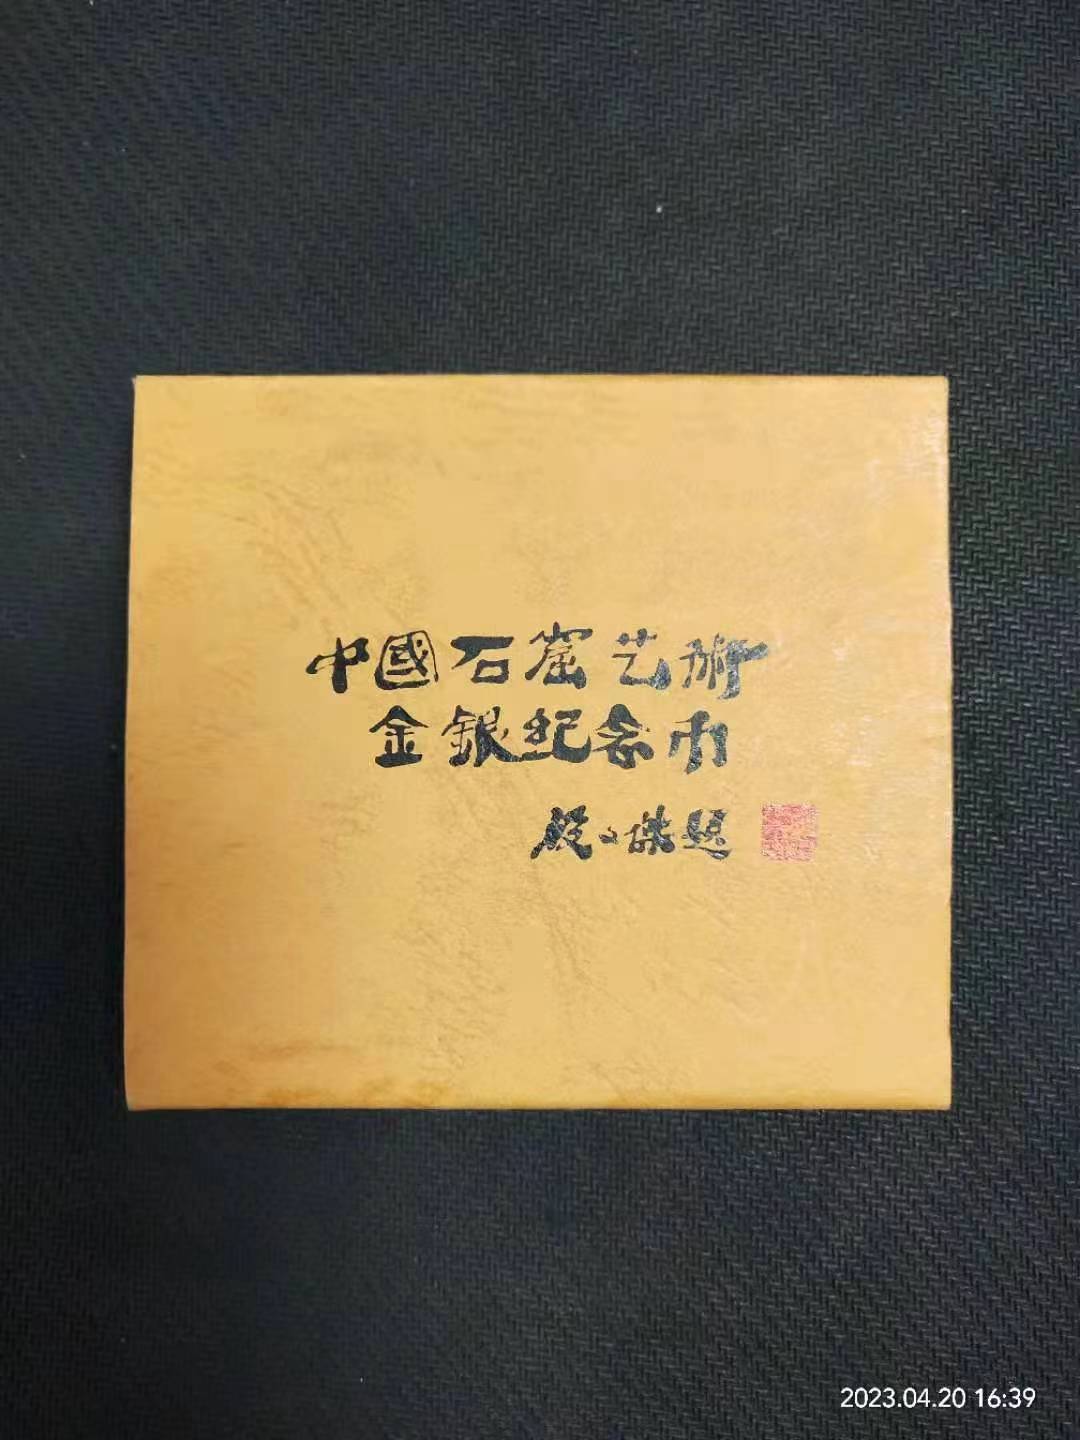 中國石窟艺術
金銀紀念币
段文傑題
2023.04.20 16:39